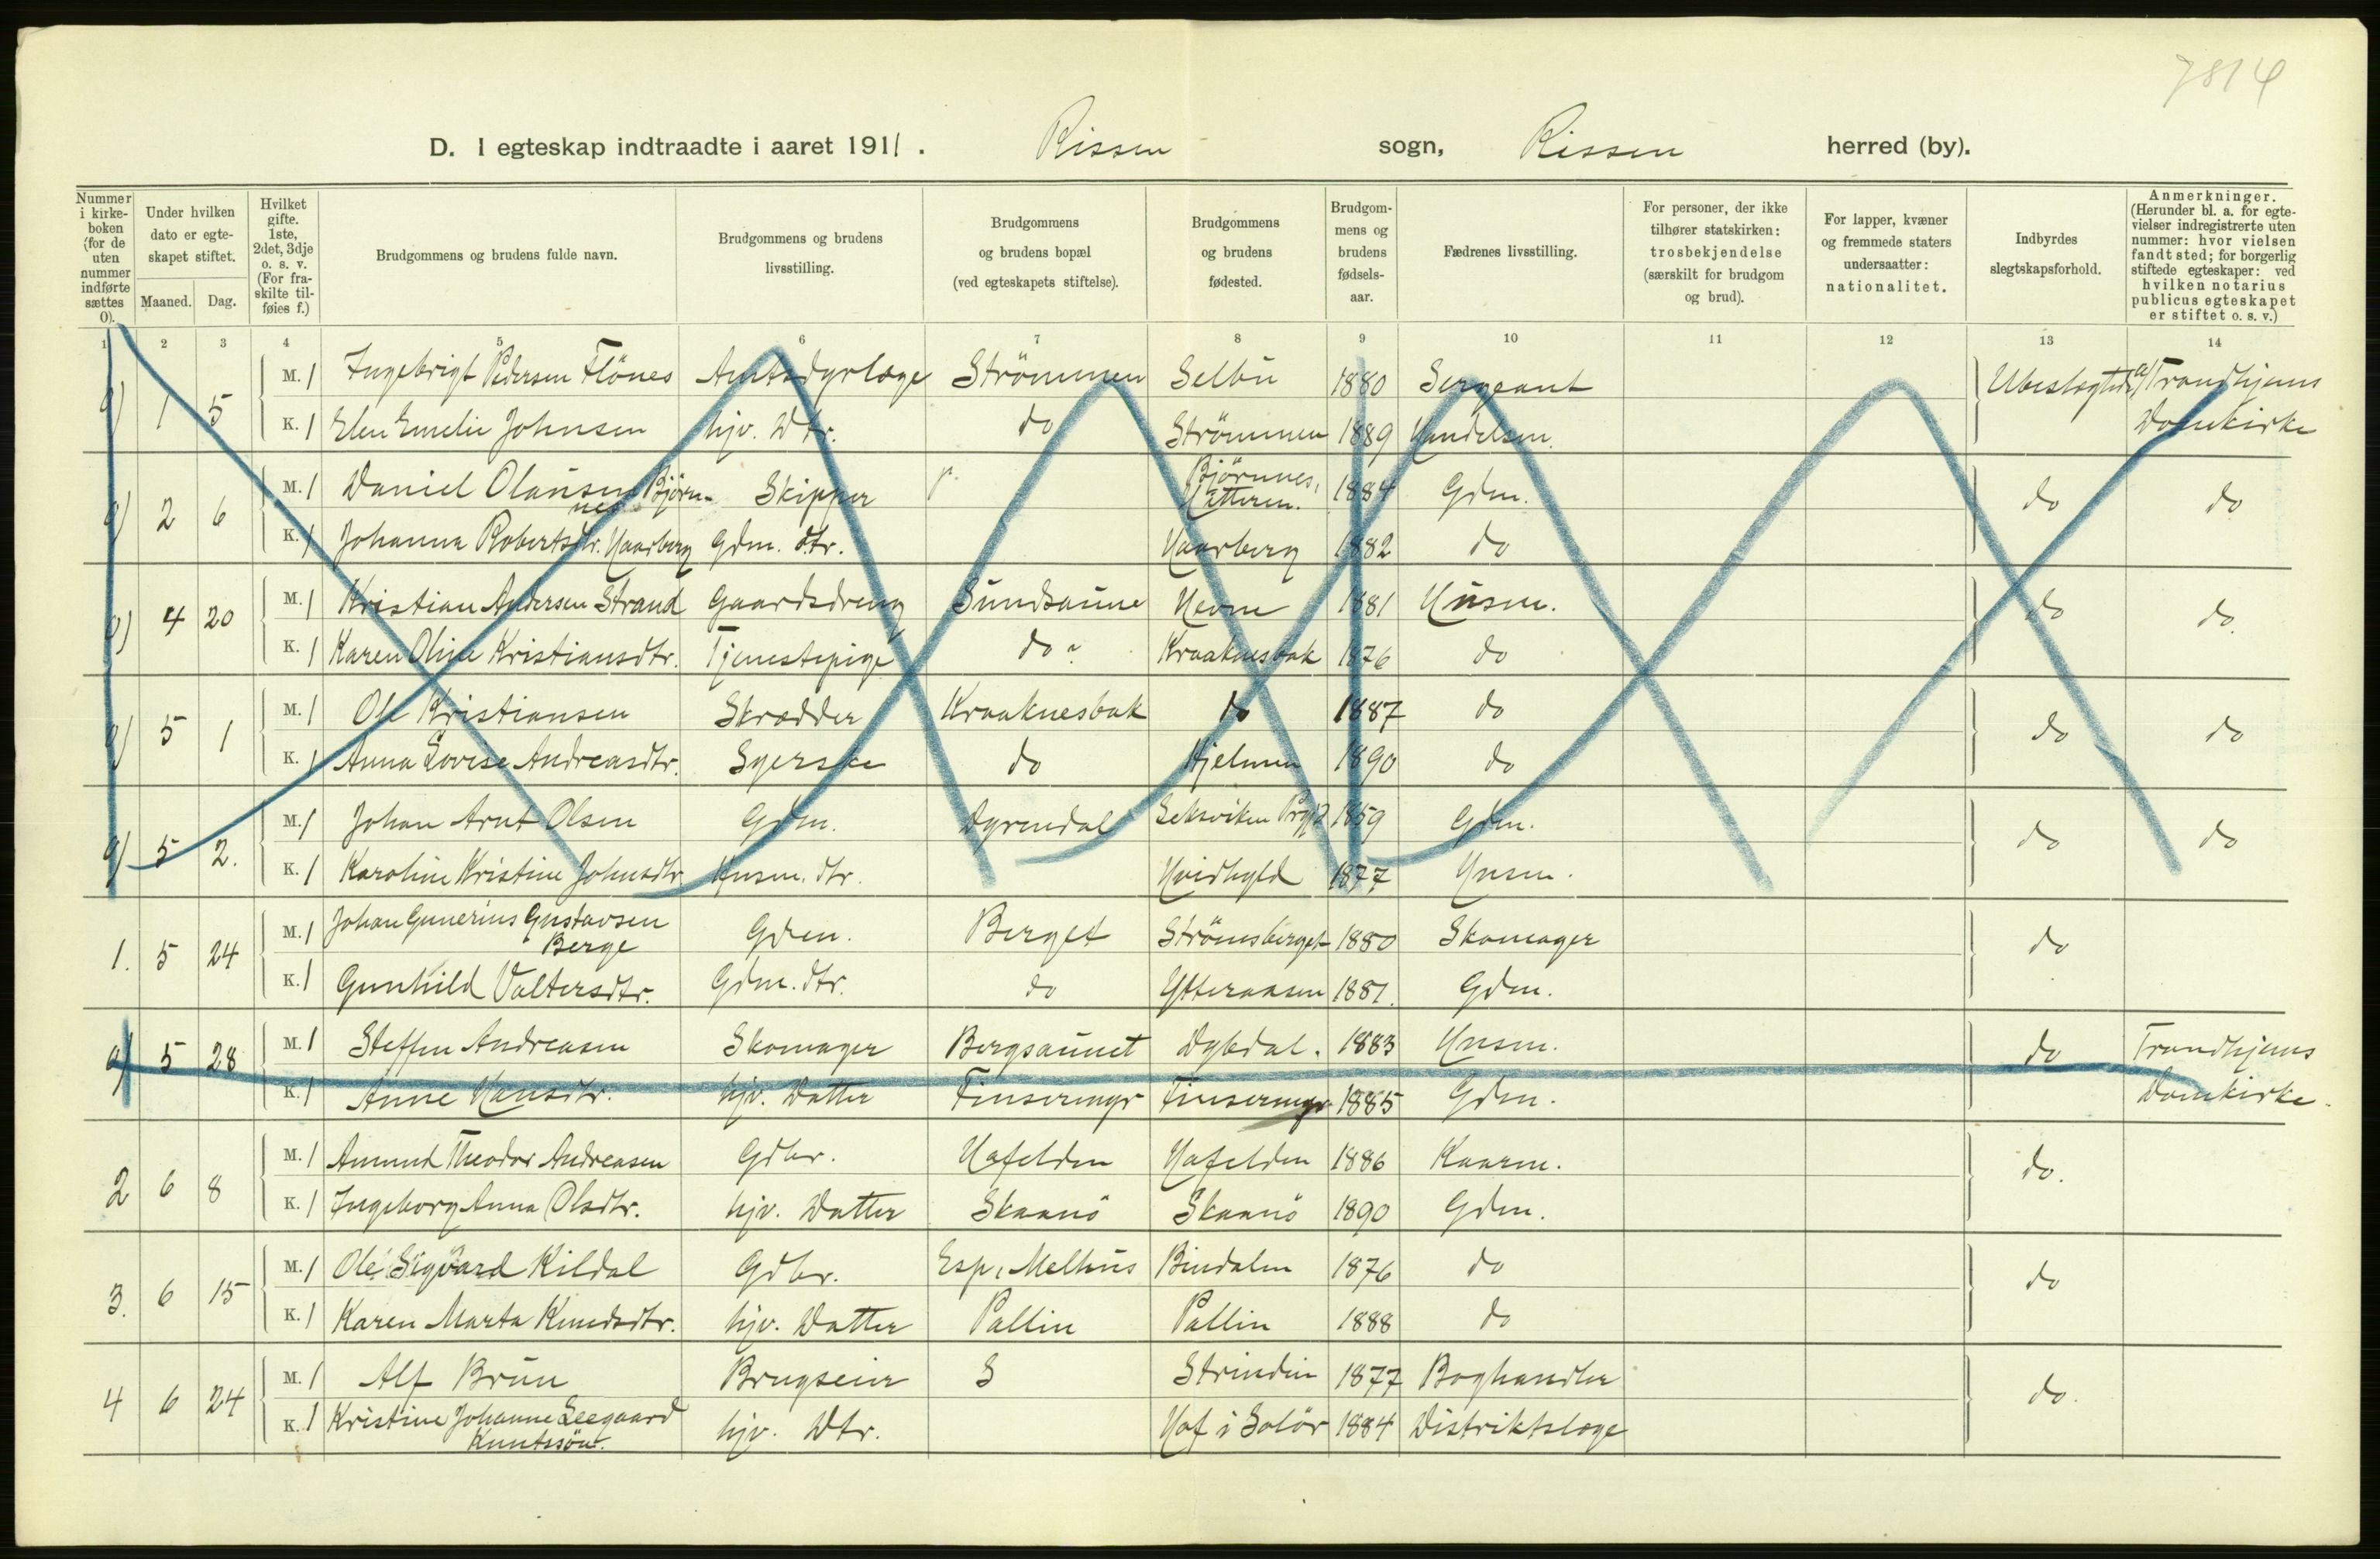 7814
D. I egteskap indtraadte i aaret 1911. Rissen sogn, Rissen herred (by).
Nummer i kirkeboken (for de uten nummer indførte sættes 0).
Under hvilken dato er egteskapet stiftet.
Maaned. Dag.
Hvilket gifte. 1ste, 2det, 3dje o. s. v. (For fraskilte tilføies f.)
Brudgommens og brudens fulde navn.
Brudgommens og brudens livsstilling.
Brudgommens og brudens bopæl (ved egteskapets stiftelse).
Brudgommens og brudens fødested.
Brudgommens og brudens fødselsaar.
Fædrenes livsstilling.
For personer, der ikke tilhører statskirken: trosbekjendelse (særskilt for brudgom og brud).
For lapper, kvæner og fremmede staters undersaatter: nationalitet.
Indbyrdes slegtskapsforhold.
Anmerkninger. (Herunder bl. a. for egtevielser indregistrerte uten nummer: hvor vielsen fandt sted; for borgerlig stiftede egteskaper: ved hvilken notarius publicus egteskapet er stiftet o. s. v.)
1 2 3 4 5 6 7 8 9 10 11 12 13 14
0) 1 5 M. 1 Ingebrigt Pedersen Flönes Amtsdyrlæge Strömmen Selbu 1880 Sergeant Ubeslegtede Trondhjems
K. 1 Elen Emelie Johnsen hjv. Dtr. do Strömmen 1889 Handelsm. Domkirke
0) 2 6 M. 1 Daniel Olausen Björnnes Skipper Björnnes, Hatteren. 1884 Gdm. do do
K. 1 Johanna Robertsdtr. Haarberg Gdm. dtr. Haarberg 1882 do
0) 4 20 M. 1 Kristian Andersen Strand Gaardsdreng Sundsaune Hevne 1881 Husm. do do
K. 1 Karen Oline Kristiansdtr. Tjenestepige do Kraaknesbak 1876 do
0) 5 1 M. 1 Ole Kristiansen Skrædder Kraaknesbak do 1887 do do do
K. 1 Anna Lovise Andreasdtr. Syerske do Hjelmen 1890 do
0) 5 2. M. 1 Johan Arnt Olsen Gdm. Dyrendal Leksviken Prgjd 1859 Gdm. do do
K. 1 Karoline Kristine Johnsdtr Husm. dtr. Hvidhyld 1877 Husm.
1. 5 24 M. 1 Johan Gunerius Gustavsen Berge Gdm. Berget Strömsberget 1880 Skomager do
K. 1 Gunhild Valtersdtr. Gdm. dtr. do Ytteraasen 1881. Gdm.
0) 5 28 M. 1 Steffen Andreasen Skomager Bergsaunet Dybdal. 1883 Husm. do Trondhjems
K. 1 Anne Hansdtr. hjv. Datter Finsermyr Finsermyr 1885 Gdm. Domkirke.
2 6 8 M. 1 Amund Theodor Andreasen Gdbr. Hafelden Hafelden 1886 Kaarm. do.
K. 1 Ingeborg Anna Olsdtr. hjv. Datter Skaanö Skaanö 1890 Gdm.
3. 6 15 M. 1 Ole Sigvard Kildal Gdbr. Esp, Melhus Bindalen 1876 do do
K. 1 Karen Marta Knudsdtr. hjv. Datter Pallin Pallin 1888 do
4 6 24 M. 1 Alf Brun Brugseier S Strinden 1877 Boghandler do.
K. 1 Kristine Johanne Leegaard Knutssön. hjv. Dtr. Hof i Solör 1884 Distriktslæge